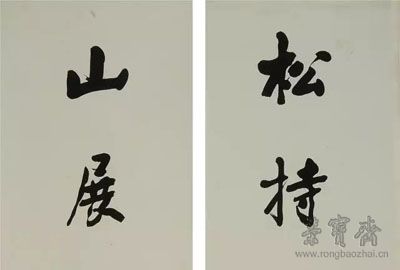 松持
山展
荣宝斋
www.rongbaozhai.cn